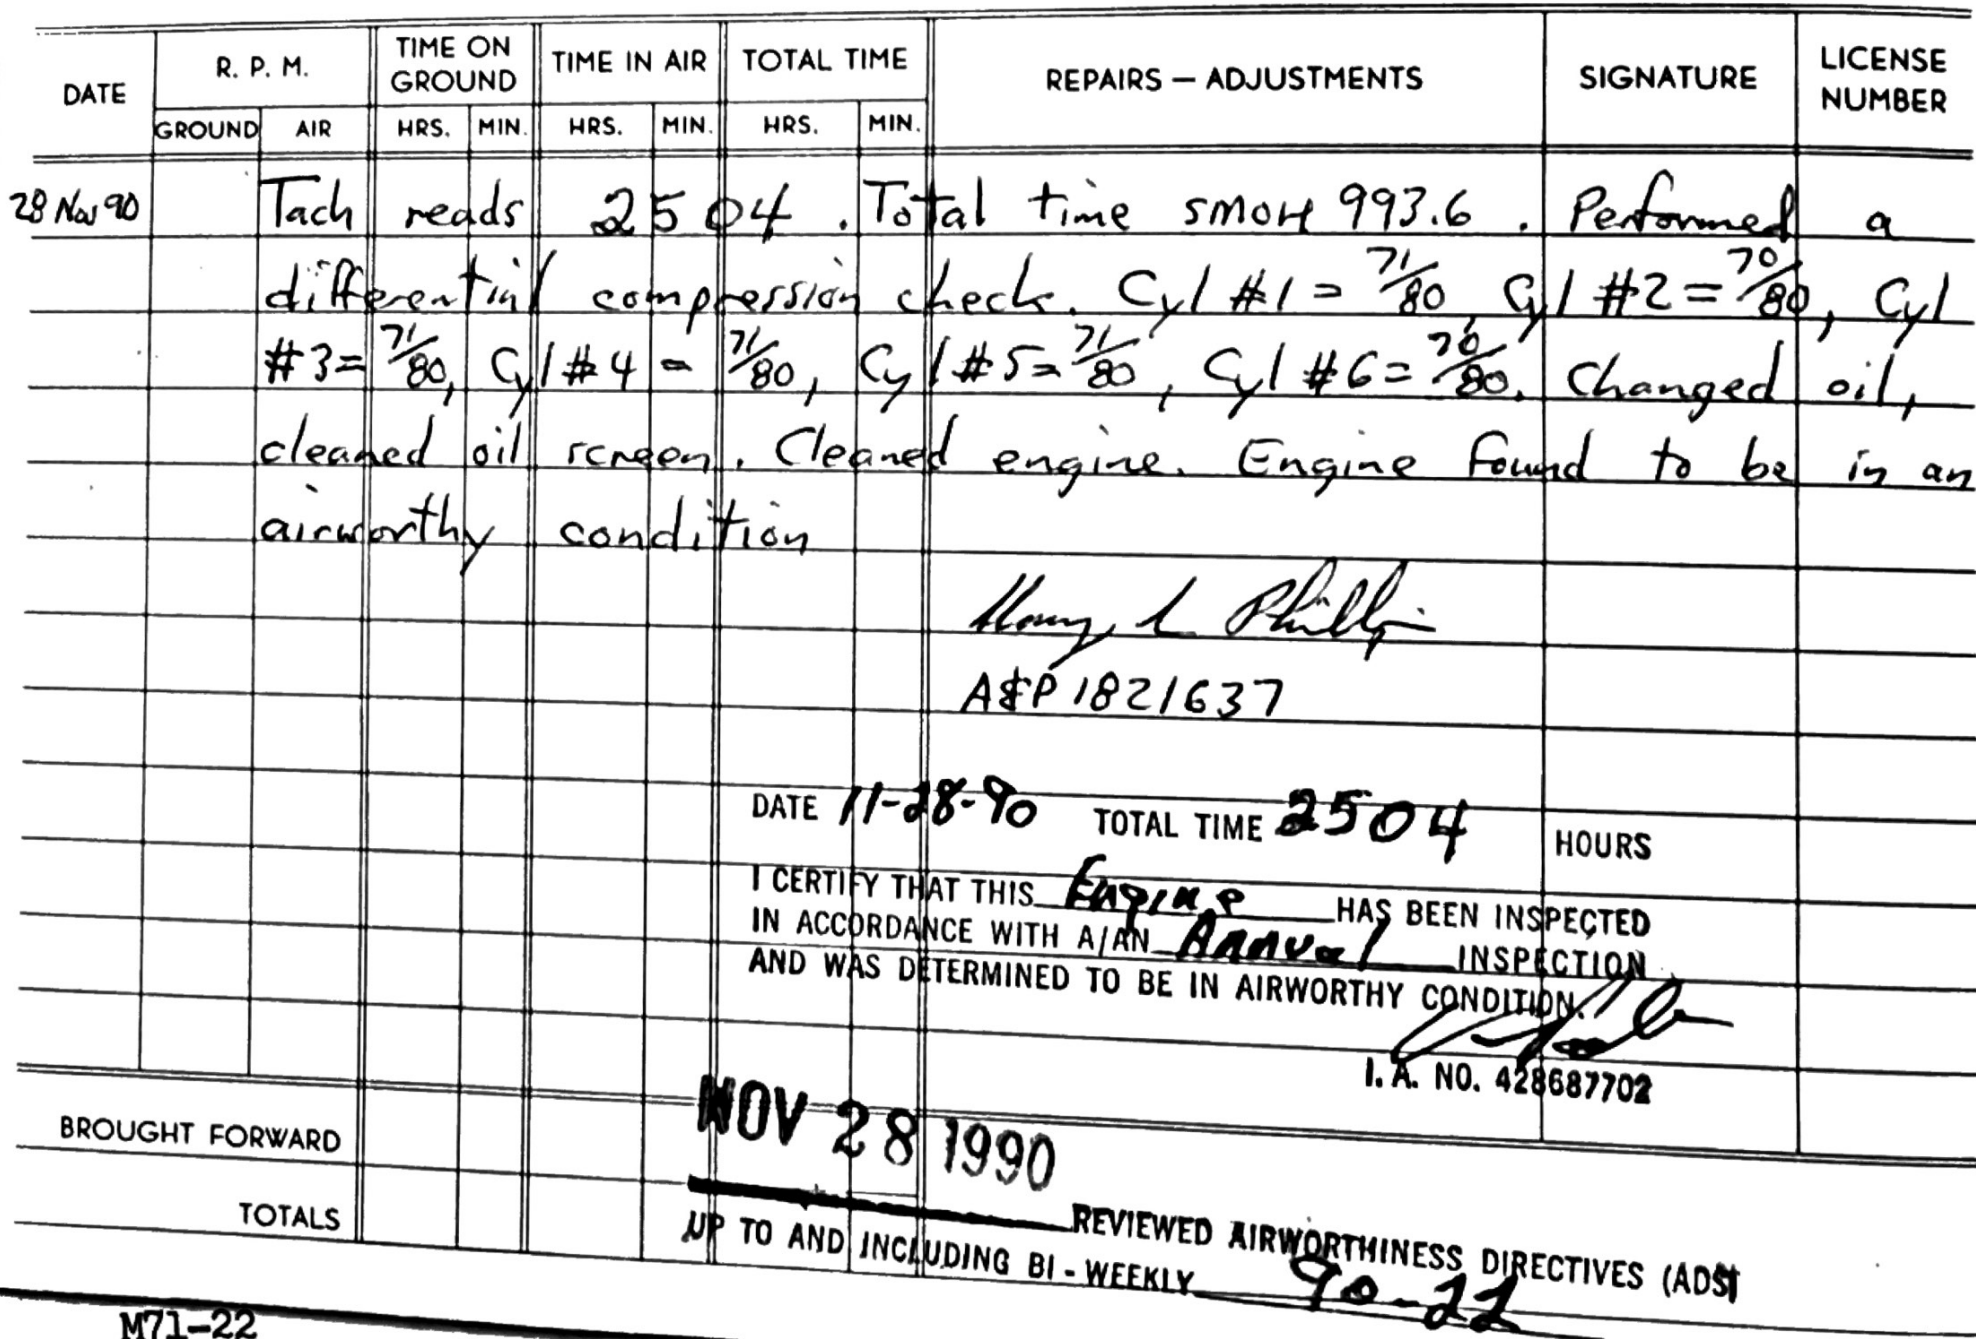 DATE R. P. M. TIME ON GROUND TIME IN AIR TOTAL TIME REPAIRS — ADJUSTMENTS SIGNATURE LICENSE NUMBER
GROUND AIR HRS. MIN. HRS. MIN. HRS. MIN.
28 Nov 90 Tach reads 2504. Total time SMOH 993.6. Performed a
differential compression check. Cyl #1 = 71/80, Cyl #2 = 70/80, Cyl
#3 = 71/80, Cyl #4 = 71/80, Cyl #5 = 71/80, Cyl #6 = 70/80. Changed oil,
cleaned oil screen. Cleaned engine. Engine found to be in an
airworthy condition
L Phillips
A&P 1821637
DATE 11-28-90 TOTAL TIME 2504 HOURS
I CERTIFY THAT THIS Engine HAS BEEN INSPECTED
IN ACCORDANCE WITH A/AN Annual INSPECTION
AND WAS DETERMINED TO BE IN AIRWORTHY CONDITION.
I. A. NO. 428687702
NOV 28 1990
BROUGHT FORWARD
REVIEWED AIRWORTHINESS DIRECTIVES (ADS)
TOTALS
UP TO AND INCLUDING BI-WEEKLY 90-22
M71-22